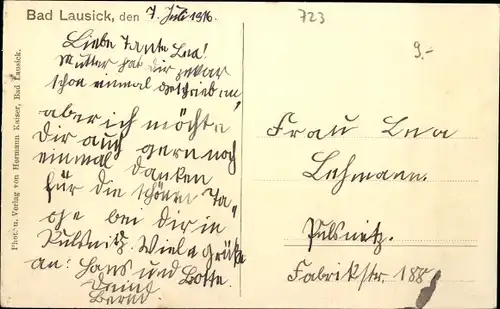 Bad Lausick, den 7. Juli 1916.
723
9.-
Liebe Tante Lea!
Mutter hat dir zwar
schon einmal geschrieben,
aber ich möchte
dir auch gern noch
einmal danken
für die schönen Ta-
ge bei dir in
Pulsnitz. Viele Grüße
an: Hans und Lotte.
Dein
Bernd.
Frau Lea
Lehmann.
Pulsnitz.
Fabrikstr. 188
Phot. u. Verlag von Hermann Kaiser, Bad Lausick.